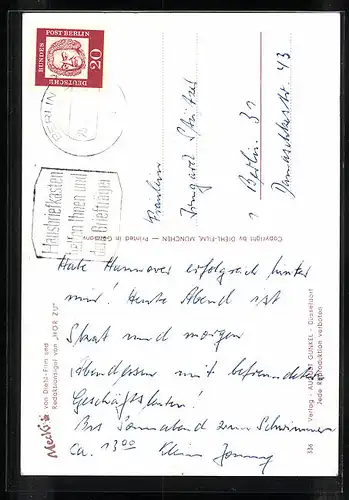 Habe Hannover erfolgreich hinter
mir! Heute Abend ist
Skat und morgen
Abendessen mit befreundeten
Geschäftsleuten!
Bis Sonnabend zum Schwimmen
ca. 13 00 Klein
Fräulein
Irmgard
1 Berlin 31
Damaschkestr. 43
DEUTSCHE
BUNDES
POST BERLIN
20
BERLIN
Hausbriefkasten
helfen Ihnen und
dem Briefträger
Copyright by DIEHL-FILM, MÜNCHEN — Printed in Germany
Mecki
von Diehl-Film und
Redaktionsigel von „HÖR ZU"
336
Verlag · AUGUST GUNKEL · Düsseldorf
Jede Reproduktion verboten!